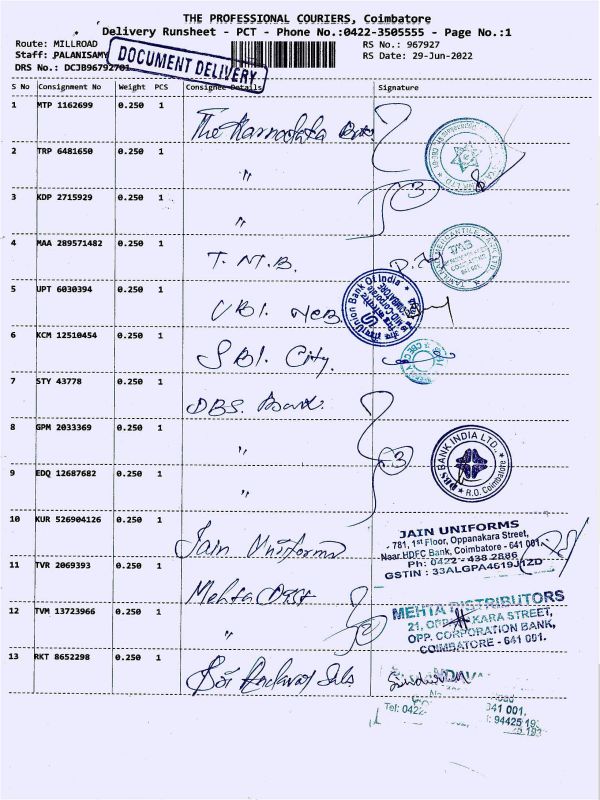 THE PROFESSIONAL COURIERS, Coimbatore
Delivery Runsheet - PCT - Phone No.:0422-3505555 - Page No.:1
Route: MILLROAD
RS No.: 967927
Staff: PALANISAMY
RS Date: 29-Jun-2022
DRS No.: DCJB96792701
DOCUMENT DELIVERY
S No Consignment No Weight PCS Consignee Details Signature
1 MTP 1162699 0.250 1
The Karnataka
2 TRP 6481650 0.250 1
"
3
3 KDP 2715929 0.250 1
"
4 MAA 289571482 0.250 1
T.M.B.
5 UPT 6030394 0.250 1
UBI
Union Bank Of India
6 KCM 12510454 0.250 1
SBI. City.
7 STY 43778 0.250 1
DBS. Bank.
8 GPM 2033369 0.250 1
"
3
DBS BANK INDIA LTD.
R.O. Coimbatore
9 EDQ 12687682 0.250 1
"
10 KUR 526904126 0.250 1
Jain Uniforms
JAIN UNIFORMS
781, 1st Floor, Oppanakara Street,
Near HDFC Bank, Coimbatore - 641 001.
Ph: 0422 - 438 2886
GSTIN : 33ALGPA4619J1ZD
11 TVR 2069393 0.250 1
Mehta
12 TVM 13723966 0.250 1
"
2
MEHTA DISTRIBUTORS
21, OPPANAKARA STREET,
OPP. CORPORATION BANK,
COIMBATORE - 641 001.
13 RKT 8652298 0.250 1
Tel: 0422-
641 001.
: 94425